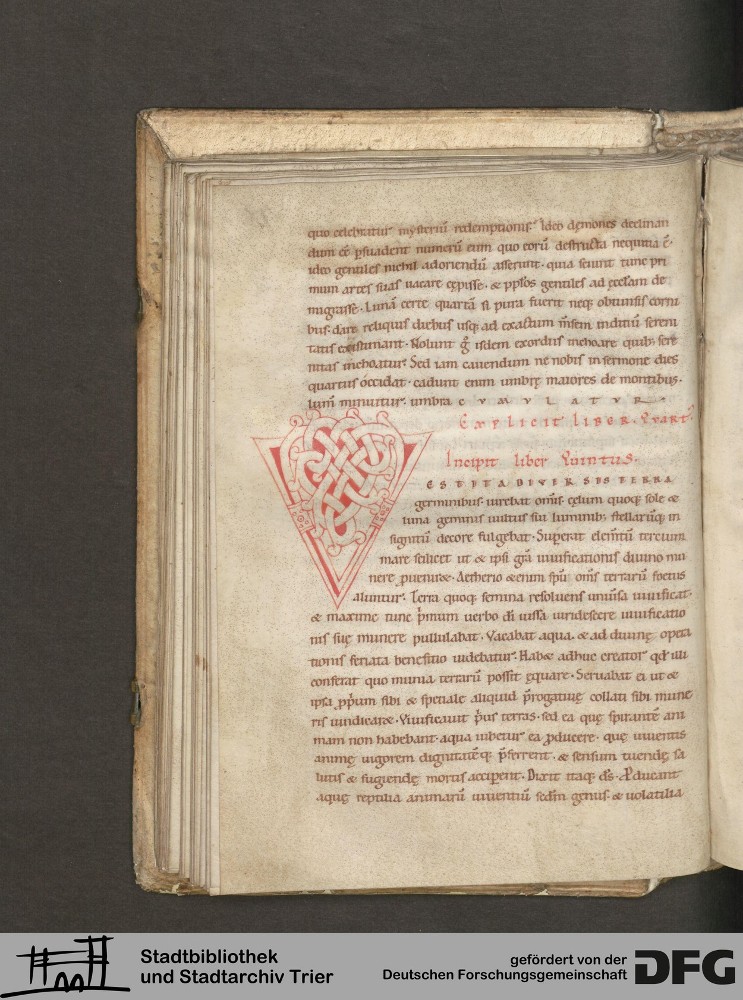 quo celebratur mysteriũ redemptionis. Ideo dęmones declinan
dum eẽ p̱suadent numerũ eum quo eorũ destructa nequitia ẽ.
ideo gentiles nichil adoriendũ asserunt. quia sciunt tunc pri
mum artes suas uacare cępisse. & pplõs gentiles ad ęcclam de
migrasse. Lunã certe quartã si pura fuerit neq; obtunsis corni
bus. dare reliquis diebus usq; ad exactum m̃sem inditiũ sereni
tatis existimant. Nolunt g̊ isdem exordiis inchoare quib; sere
nitas inchoatur. Sed iam cauendum ne nobis in sermone dies
quartus occidat. cadunt enim umbrę maiores de montibus.
lum̃ minuitur. umbra CVMVLATVR.
Explicit LIBER. Qvart
Incipit liber Quintus.
VESTITA DIVERSIS TERRA
germinibus. uirebat om̃is. cęlum quoq; sole &
luna geminis uultus sui luminib; stellarũq; in
signitũ decore fulgebat. Superat elem̃tũ tercium
mare scilicet ut & ipsi gr̃a uiuificationis diuino mu
nere p̱ueniret. Aetherio &enim sp̃u om̃s terrarũ foetus
aluntur. Terra quoq; semina resoluens uniũsa uiuificat.
& maxime tunc p̃mum uerbo dĩ iussa uiridescere uiuificatio
nis suę munere pullulabat. Vacabat aqua. & ad diuinę opera
tionis feriata benefitio uidebatur. Hab& adhuc creator qd̃ illi
conferat quo munia terrarũ possit ęquare. Seruabat ei ut &
ipsa p̱p̃um sibi & spetiale aliquid p̃rogatiuę collati sibi mune
ris uindicaret. Viuificauit p̃us terras. sed ea quę spirantẽ ani
mam non habebant. aqua iubetur ea p̱ducere. quę uiuentis
animę uigorem dignitatẽq; p̃ferrent. & sensum tuendę sa
lutis & fugiendę mortis acciperent. Dixit itaq; dĩs. P̱ducant
aquę reptilia animarũ uiuentiũ sedm̃ genus. & uolatilia
Stadtbibliothek
und Stadtarchiv Trier
gefördert von der
Deutschen Forschungsgemeinschaft
DFG